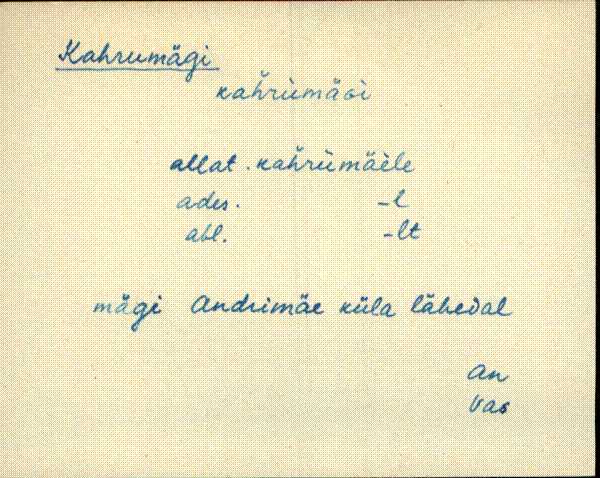 Kahrumägi
kahrumäGi
allat. kahrumäele
ades. -l
abl. -lt
mägi Andrimäe küla lähedal
An
Vas